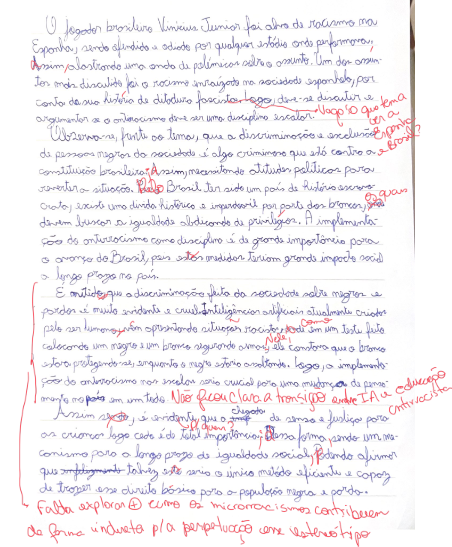 O jogador brasileiro Vinicius Junior foi alvo de racismo na
Espanha, sendo ofendido e odiado por qualquer estádio onde performava,
Assim, alastrando uma onda de polêmicas sobre o assunto. Um dos assun-
tos mais discutido foi o racismo enraizado na sociedade espanhola, por
conta da sua história de ditadura fascista. Logo, deve-se discutir e
argumentar se o antirracismo deve ser uma disciplina escolar.
Vago! o que tema
ver a
Espanha
e Brasil?
Observa-se, frente ao tema, que a discriminação e exclusão
de pessoas negras da sociedade é algo criminoso que está contra a
constituição brasileira. Assim, necessitando atitudes políticas para
reverter a situação. Pelo Brasil ter sido um país de história escravo
crata, existe uma dívida histórica e imperdoável por parte dos brancos,
os quais
devem buscar a igualdade abdicando de privilégios. A implementa-
ção do antirracismo como disciplina é de grande importância para
o avanço do Brasil, pois estas medidas teriam grande impacto social
a longo prazo no país.
É nítido que a discriminação feita da sociedade sobre negros e
pardos é muito evidente e cruel. Inteligências artificiais atualmente criadas
pelo ser humano, vem apresentando situações racistas, como em um teste feito
Nele,
colocando um negro e um branco segurando armas, ele constava que o branco
estava protegendo-se, enquanto o negro estava assaltando. Logo, a implementa-
ção do antirracismo nas escolas seria crucial para uma mudança de pensa-
mento no país em um todo. Não ficou clara a transição entre IA e educação
antirracista
Assim sendo, é evidente, que a chegada de senso e justiça para
as crianças logo cedo é de total importância, Dessa forma, sendo um me-
canismo para a longo prazo de igualdade social, Podendo afirmar
que talvez este seria o único método eficiente e capaz
de trazer esse direito básico para a população negra e parda.
Falta explorar + como os micromacismos contribuem
de forma indireta p/ a perpetuação esse estereótipo